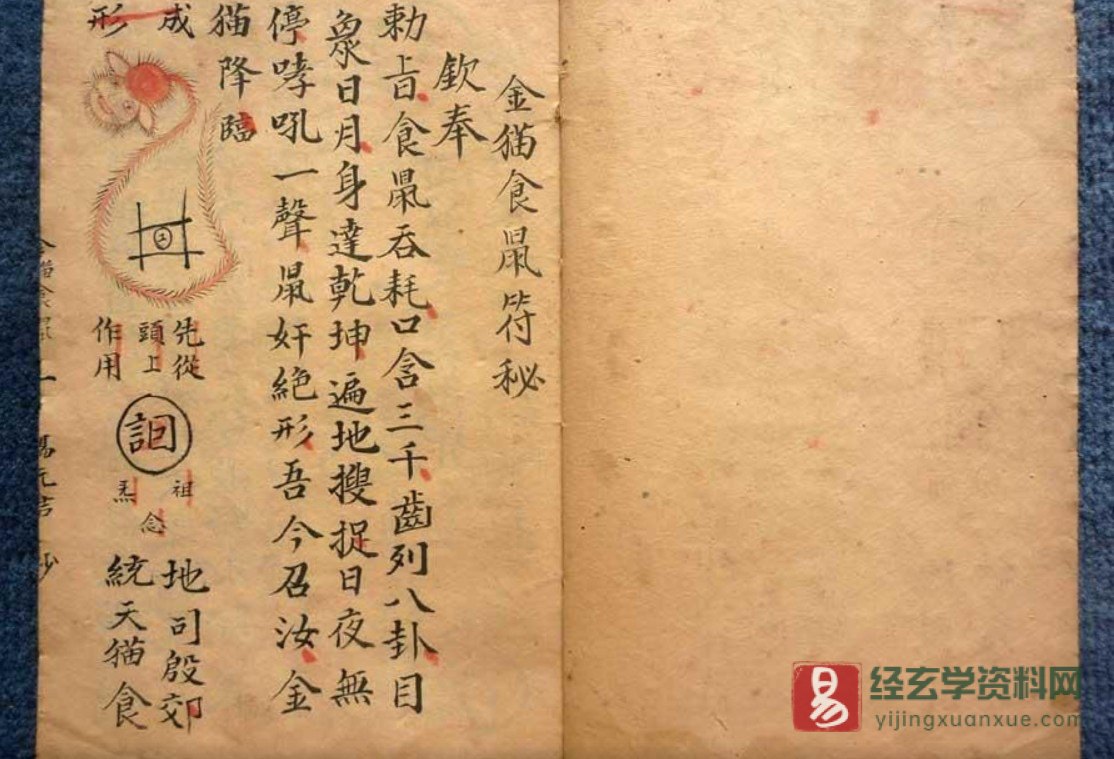 金猫食鼡符秘
欽奉
勅旨食鼡吞耗口含三千齒列八卦目
象日月身達乾坤遍地搜捉日夜無
停哮吼一聲鼡奸絶形吾今召汝金
猫降臨
成
形
先從
頭上
作用
祖
炁
念
地司殷郊
統天猫食
经玄学资料网
yijingxuanxue.com